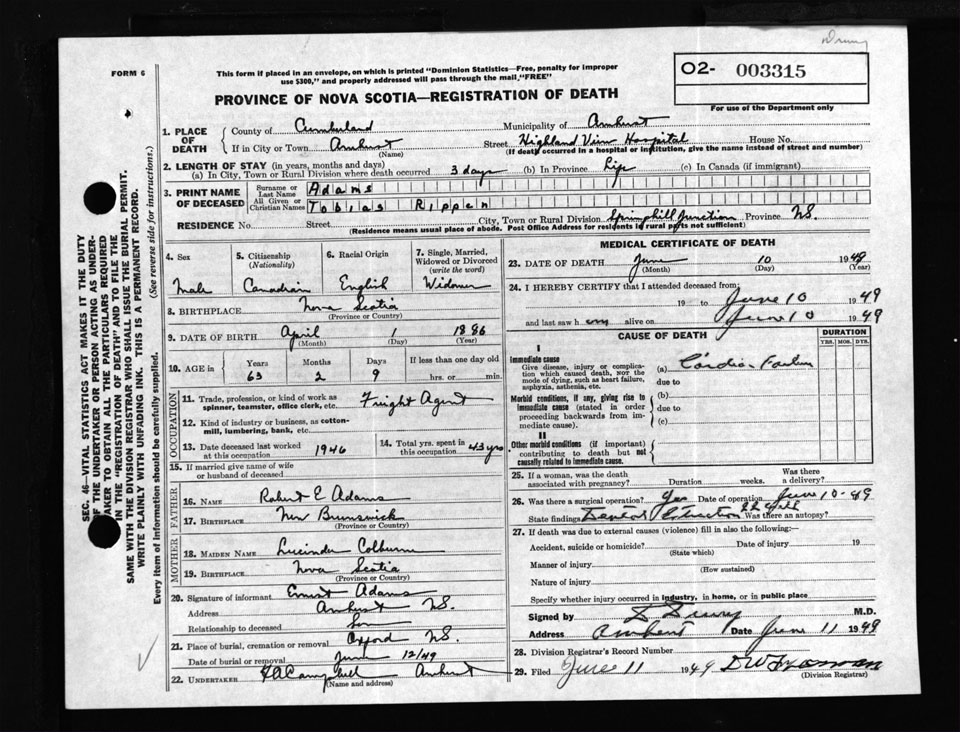 Drury
FORM 6
This form if placed in an envelope, on which is printed "Dominion Statistics—Free, penalty for improper
use $300," and properly addressed will pass through the mail, "FREE"
O2- 003315
For use of the Department only
PROVINCE OF NOVA SCOTIA—REGISTRATION OF DEATH
SEC. 46—VITAL STATISTICS ACT MAKES IT THE DUTY
OF THE UNDERTAKER OR PERSON ACTING AS UNDER-
TAKER TO OBTAIN ALL THE PARTICULARS REQUIRED
IN THE "REGISTRATION OF DEATH" AND TO FILE THE
SAME WITH THE DIVISION REGISTRAR WHO SHALL ISSUE THE BURIAL PERMIT.
WRITE PLAINLY WITH UNFADING INK. THIS IS A PERMANENT RECORD.
Every item of information should be carefully supplied. (See reverse side for instructions.)
1. PLACE OF DEATH County of Cumberland Municipality of Amherst
If in City or Town Amherst (Name) Street Highland View Hospital House No.
(If death occurred in a hospital or institution, give the name instead of street and number)
2. LENGTH OF STAY (in years, months and days)
(a) In City, Town or Rural Division where death occurred 3 days (b) In Province Life (c) In Canada (if immigrant)
3. PRINT NAME OF DECEASED Surname or Last Name Adams
All Given or Christian Names Tobias Rippen
RESIDENCE No. Street City, Town or Rural Division Springhill Junction Province N.S.
(Residence means usual place of abode. Post Office Address for residents in rural parts not sufficient)
4. Sex Male
5. Citizenship (Nationality) Canadian
6. Racial Origin English
7. Single, Married, Widowed or Divorced (write the word) Widower
8. BIRTHPLACE Nova Scotia
(Province or Country)
9. DATE OF BIRTH April 1 1886
(Month) (Day) (Year)
10. AGE in Years 63 Months 2 Days 9 If less than one day old hrs. or min.
OCCUPATION
11. Trade, profession, or kind of work as spinner, teamster, office clerk, etc. Freight Agent
12. Kind of industry or business, as cotton-mill, lumbering, bank, etc.
13. Date deceased last worked at this occupation 1946
14. Total yrs. spent in this occupation 43 yrs
15. If married give name of wife or husband of deceased
FATHER
16. NAME Robert E Adams
17. BIRTHPLACE New Brunswick
(Province or Country)
MOTHER
18. MAIDEN NAME Lucinda Colburne
19. BIRTHPLACE Nova Scotia
(Province or Country)
20. Signature of informant Ernest Adams
Address Amherst N.S.
Relationship to deceased Son
21. Place of burial, cremation or removal Oxford N.S.
Date of burial or removal June 12/49
22. UNDERTAKER Campbell Amherst
(Name and address)
MEDICAL CERTIFICATE OF DEATH
23. DATE OF DEATH June 10 1949
(Month) (Day) (Year)
24. I HEREBY CERTIFY that I attended deceased from:
19 to June 10 1949
and last saw h im alive on June 10 1949
CAUSE OF DEATH
DURATION
YRS. MOS. DYS.
I
Immediate cause
Give disease, injury or complication which caused death, not the mode of dying, such as heart failure, asphyxia, asthenia, etc.
(a) Cardiac Failure
due to
Morbid conditions, if any, giving rise to immediate cause (stated in order proceeding backwards from immediate cause).
(b)
due to
(c)
II
Other morbid conditions (if important) contributing to death but not causally related to immediate cause.
25. If a woman, was the death associated with pregnancy? Duration weeks. Was there a delivery?
26. Was there a surgical operation? Yes Date of operation June 10-49
State findings Dental Extraction Was there an autopsy?
27. If death was due to external causes (violence) fill in also the following:—
Accident, suicide or homicide? Date of injury 19
(State which)
Manner of injury
(How sustained)
Nature of injury
Specify whether injury occurred in industry, in home, or in public place
Signed by D Drury M.D.
Address Amherst Date June 11 1949
28. Division Registrar's Record Number
29. Filed June 11 1949
(Division Registrar)